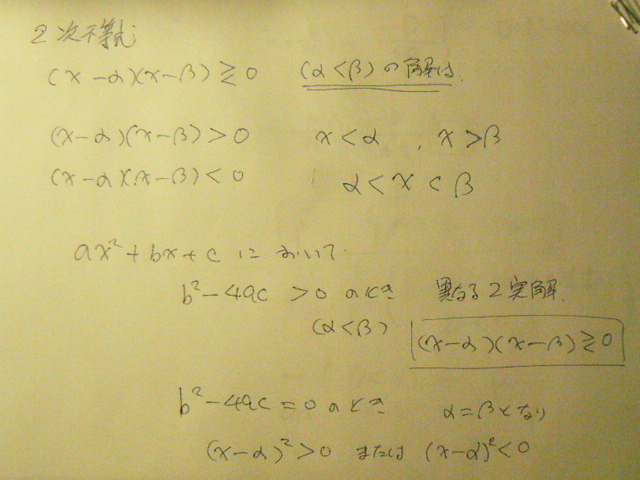 2次不等式
(x-α)(x-β)≧0 (α<β)の解は
(x-α)(x-β)>0 x<α , x>β
(x-α)(x-β)<0 α<x<β
ax²+bx+cにおいて
b²-4ac>0のとき 異なる2実解
(α<β) (x-α)(x-β)≧0
b²-4ac=0のとき α=βとなり
(x-α)²>0 または (x-α)²<0